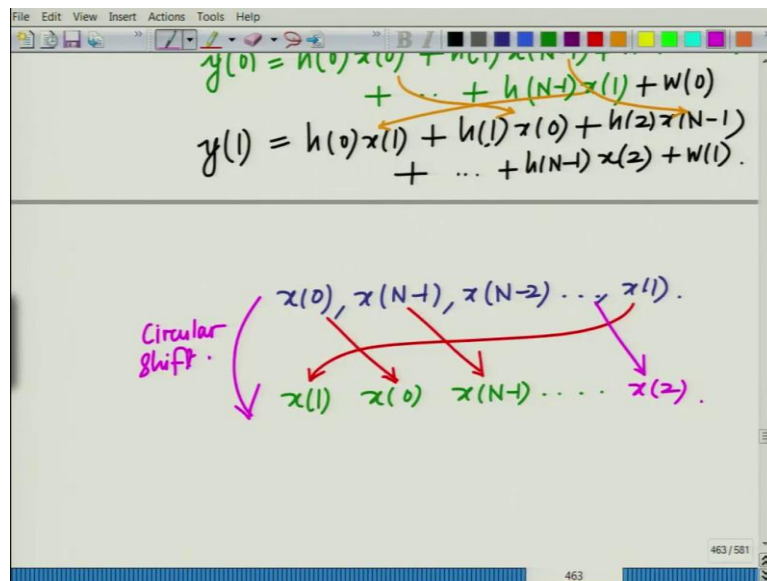 File Edit View Insert Actions Tools Help
B I
y(0) = h(0)x(0) + h(1)x(N-1) + ..
+ ... + h(N-1)x(1) + W(0)
y(1) = h(0)x(1) + h(1)x(0) + h(2)x(N-1)
+ ... + h(N-1)x(2) + W(1).
x(0), x(N-1), x(N-2) ..., x(1).
Circular
Shift.
x(1) x(0) x(N-1) .... x(2).
463/581
463